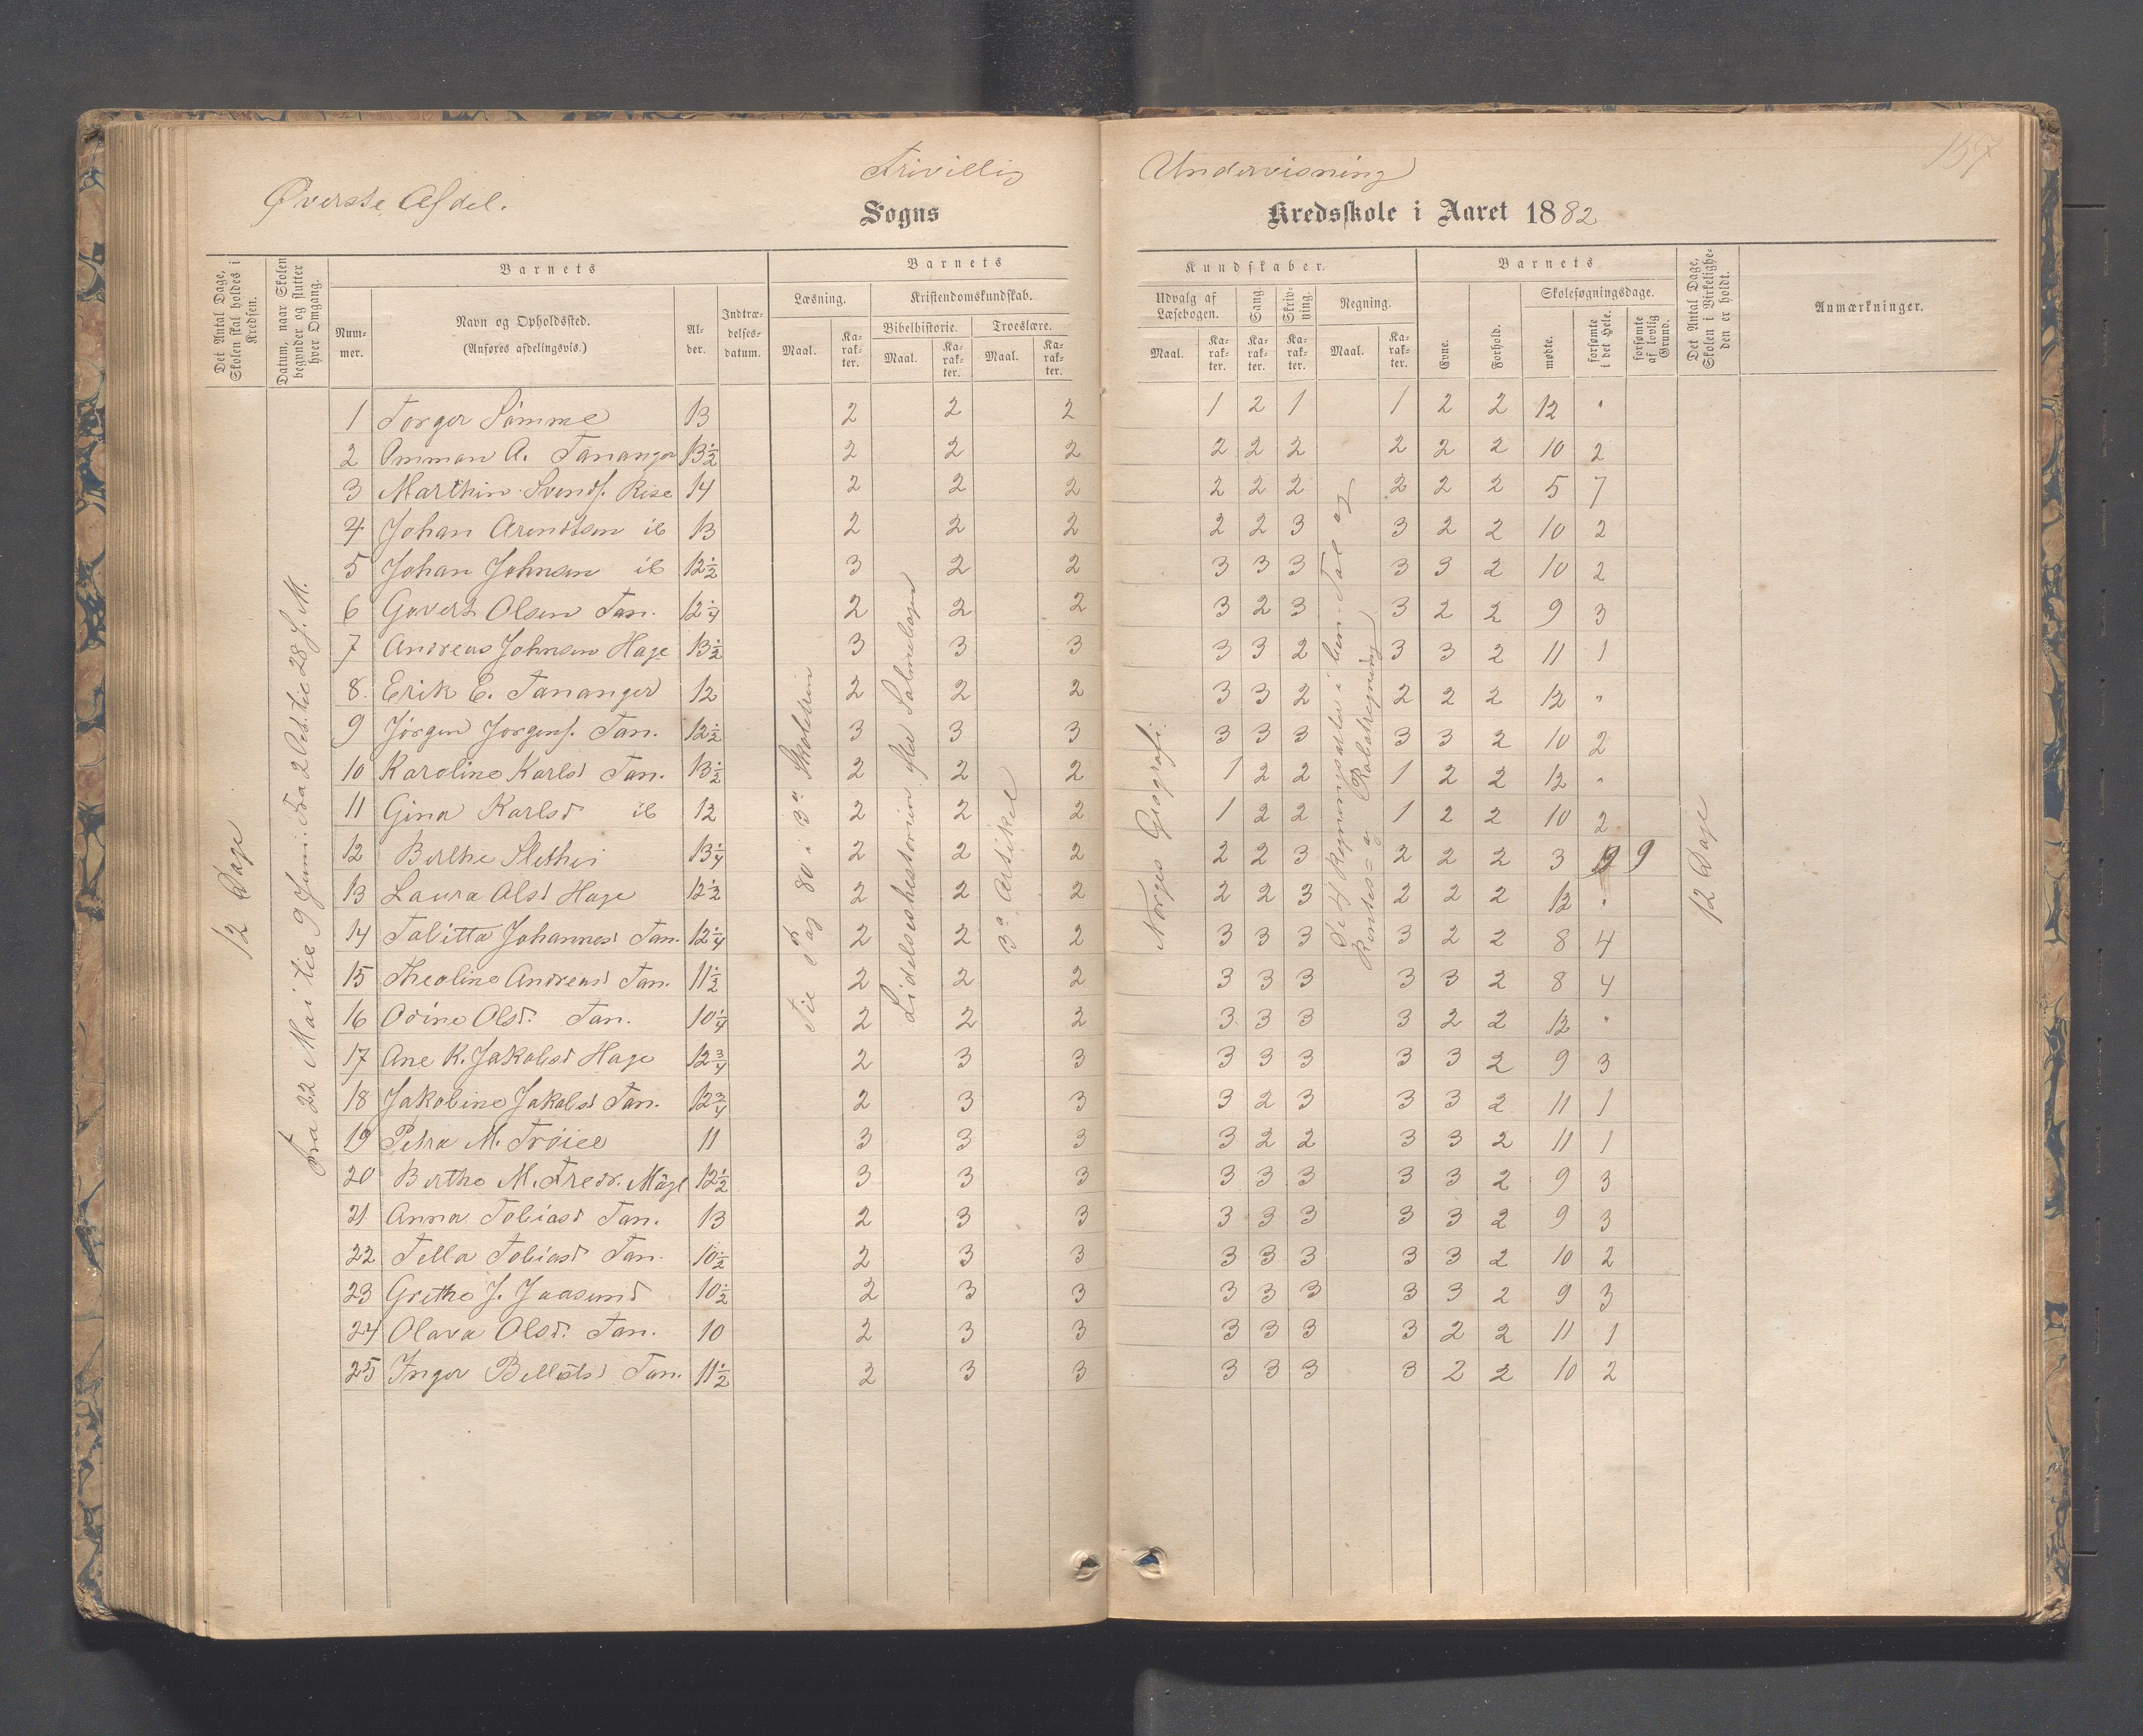 157
Frivillig Undervisning
Øverste Afdel. Sogns Kredsskole i Aaret 1882
Det Antal Dage, Skolen skal holdes i Kredsen.
Datum, naar Skolen begynder og slutter hver Omgang.
Barnets
Num-mer.
Navn og Opholdssted.
(Anføres afdelingsvis.)
Al-der.
Indtræ-delses-datum.
Barnets
Læsning.
Kristendomskundskab.
Bibelhistorie. Troeslære.
Maal. Ka-rak-ter. Maal. Ka-rak-ter. Maal. Ka-rak-ter.
Kundskaber.
Udvalg af Læsebogen. Sang. Skriv-ning. Regning.
Maal. Ka-rak-ter. Ka-rak-ter. Ka-rak-ter. Maal. Ka-rak-ter.
Barnets
Evne. Forhold.
Skolesøgningsdage.
mødte. forsømte i det Hele. forsømte af lovlig Grund.
Det Antal Dage, Skolen i Virkelighe-den er holdt.
Anmærkninger.
12 Dage
Fra 22 Mai til 9 Juni. Fra 2 Oct. til 28 s. M.
Til Pag 80 i 3a Skoletrin
Lidelseshistorien Salmebogen
3a Artikel
Norges Geografi.
Regningsarter i ben. Tal og
Rentes = og Rabatregning
12 Dage
1 Torger Sömme 13 2 2 2 1 2 1 1 2 2 12 "
2 Ommon A. Tananger 13½ 2 2 2 2 2 2 2 2 2 10 2
3 Marthin Svends. Risa 14 2 2 2 2 2 2 2 2 2 5 7
4 Johan Arendtsen ib 13 2 2 2 2 2 3 3 2 2 10 2
5 Johan Johnsen ib 12½ 3 2 2 3 3 3 3 3 2 10 2
6 Govert Olsen Tan. 12¼ 2 2 2 3 2 3 3 2 2 9 3
7 Andreas Johnsen Hage 13½ 3 3 3 3 3 2 3 3 2 11 1
8 Erik E. Tananger 12 2 2 2 3 3 2 2 2 2 12 "
9 Jörgen Jorgens. Tan. 12½ 3 3 3 3 3 3 3 3 2 10 2
10 Karoline Karlsd Tan. 13½ 2 2 2 1 2 2 1 2 2 12 "
11 Gina Karlsd ib 12 2 2 2 1 2 2 1 2 2 10 2
12 Berthe 13¼ 2 2 2 2 2 3 2 2 2 3 9 9
13 Laura Olsd Hage 12½ 2 2 2 2 2 3 2 2 2 12 "
14 Tabitta Johannesd Tan. 12¼ 2 2 2 3 3 3 3 2 2 8 4
15 Theoline Andreasd Tan. 11½ 2 2 2 3 3 3 3 3 2 8 4
16 Odine Olsd. Tan. 10¼ 2 2 2 3 3 3 3 2 2 12 "
17 Ane K. Jakobsd Hage 12¾ 2 3 3 3 3 3 3 3 2 9 3
18 Jakobine Jakobsd Tan. 12¾ 2 3 3 3 2 3 3 3 2 11 1
19 Petra M. Tröiel 11 3 3 3 3 2 2 3 3 2 11 1
20 Berthe M. Fredr. Mæge 12½ 3 3 3 3 3 3 3 3 2 9 3
21 Anna Tobiasd Tan. 13 2 3 3 3 3 3 3 3 2 9 3
22 Tella Tobiasd Tan. 10½ 2 3 3 3 3 3 3 3 2 10 2
23 Grethe J. Jaasund 10½ 2 3 3 3 3 3 3 3 2 9 3
24 Olava Olsd. Tan. 10 2 3 3 3 3 3 3 2 2 11 1
25 Inger Tan. 11½ 2 3 3 3 3 3 3 2 2 10 2